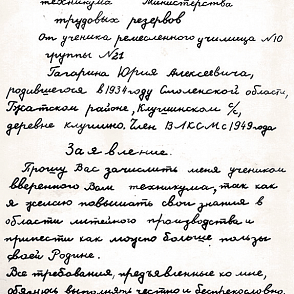 техникума Министерства
трудовых резервов
От ученика ремесленного училища N10
группы №21
Гагарина Юрия Алексеевича,
родившегося в 1934 году Смоленской области,
Гжатском районе, Клушинском с/с,
деревне клушино. Член ВЛКСМ с 1949 года
Заявление.
Прошу Вас зачислить меня учеником
вверенного Вам техникума, так как
я желаю повышать свои знания в
области литейного производства и
принести как можно больше пользы
своей Родине.
Все требования, предъявленные ко мне,
обязуюсь выполнять честно и беспрекословно.